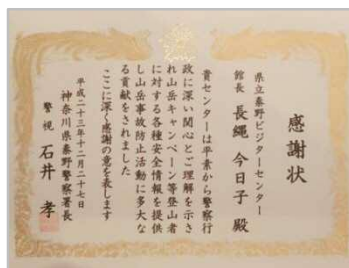 感謝状
県立秦野ビジターセンター
館長 長縄 今日子 殿
貴センターは平素から警察行
政に深い関心とご理解を示さ
れ山岳キャンペーン等登山者
に対する各種安全情報を提供
し山岳事故防止活動に多大な
る貢献をされました
ここに深く感謝の意を表します
平成二十三年十二月二十七日
神奈川県秦野警察署長
警視 石井 孝